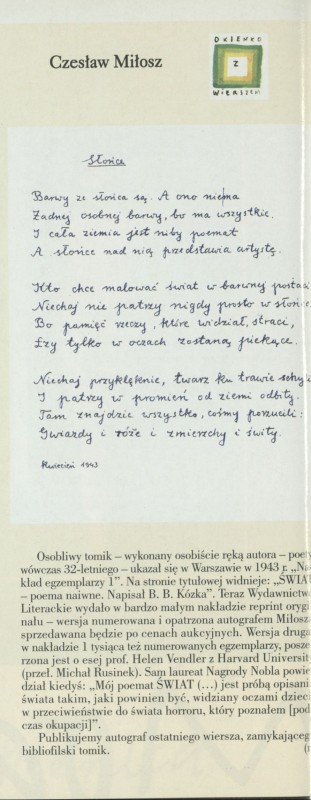 Czesław Miłosz
OKIENKO
Z
WIERSZEM
Słońce
Barwy ze słońca są. A ono niema
Żadnej osobnej barwy, bo ma wszystkie.
I cała ziemia jest niby poemat
A słońce nad nią przedstawia artystę.
Kto chce malować świat w barwnej postaci
Niechaj nie patrzy nigdy prosto w słońce
Bo pamięć rzeczy, które widział, straci,
Łzy tylko w oczach zostaną piekące.
Niechaj przyklęknie, twarz ku trawie schyli
I patrzy w promień od ziemi odbity.
Tam znajdzie wszystko, cośmy porzucili:
Gwiazdy i róże i zmierzchy i świty.
Kwiecień 1943
Osobliwy tomik – wykonany osobiście ręką autora – poety
wówczas 32-letniego – ukazał się w Warszawie w 1943 r. „Na-
kład egzemplarzy 1”. Na stronie tytułowej widnieje: „ŚWIAT
– poema naiwne. Napisał B. B. Kózka”. Teraz Wydawnictwo
Literackie wydało w bardzo małym nakładzie reprint orygi-
nału – wersja numerowana i opatrzona autografem Miłosza
sprzedawana będzie po cenach aukcyjnych. Wersja druga
w nakładzie 1 tysiąca też numerowanych egzemplarzy, posze-
rzona jest o esej prof. Helen Vendler z Harvard University
(przeł. Michał Rusinek). Sam laureat Nagrody Nobla powie-
dział kiedyś: „Mój poemat ŚWIAT (…) jest próbą opisania
świata takim, jaki powinien być, widziany oczami dzieci
w przeciwieństwie do świata horroru, który poznałem [pod-
czas okupacji]”.
Publikujemy autograf ostatniego wiersza, zamykającego
bibliofilski tomik.